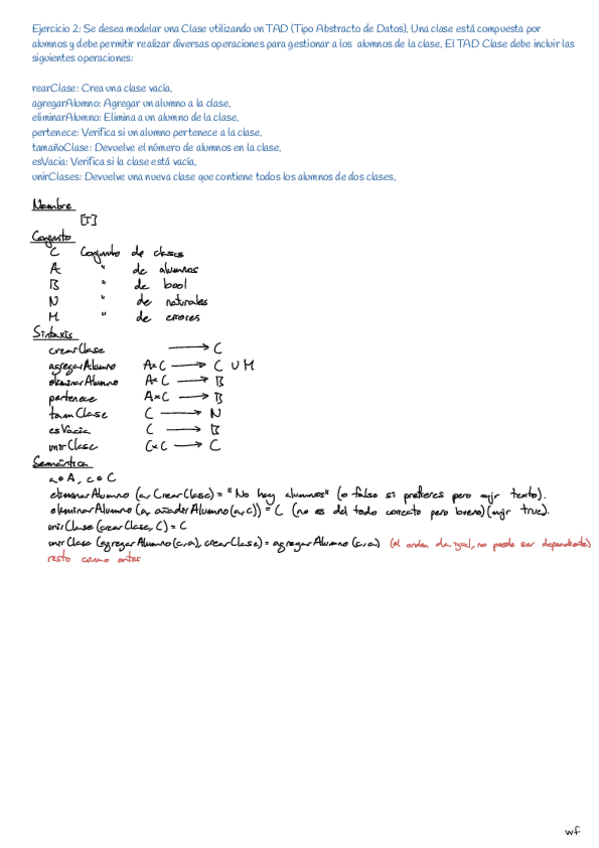 Ejercicio 2: Se desea modelar una Clase utilizando un TAD (Tipo Abstracto de Datos). Una clase está compuesta por
alumnos y debe permitir realizar diversas operaciones para gestionar a los alumnos de la clase. El TAD Clase debe incluir las
siguientes operaciones:
rearClase: Crea una clase vacía.
agregarAlumno: Agregar un alumno a la clase.
eliminarAlumno: Elimina a un alumno de la clase.
pertenece: Verifica si un alumno pertenece a la clase.
tamañoClase: Devuelve el número de alumnos en la clase.
esVacia: Verifica si la clase está vacía.
unirClases: Devuelve una nueva clase que contiene todos los alumnos de dos clases.
Nombre
[T]
Conjunto
C Conjunto de clases
A " de alumnos
B " de bool
N " de naturales
M " de errores
Sintaxis
crearClase → C
agregarAlumno A×C → C ∪ M
eliminarAlumno A×C → B
pertenece A×C → B
tamClase C → N
esVacia C → B
unirClase C×C → C
Semántica
a ∈ A, c ∈ C
eliminarAlumno (a, CrearClase) = "No hay alumnos" (o false si prefieres pero mjr texto).
eleminarAlumno (a, añadirAlumno (a, c)) = C (no es del todo correcto pero bueno) (mjr true).
unirClase (crearClase, C) = C
unirClase (agregarAlumno (c, a), crearClase) = agregarAlumno (c, a) (el orden da igual, no puede ser dependiente)
resto como antes
wf